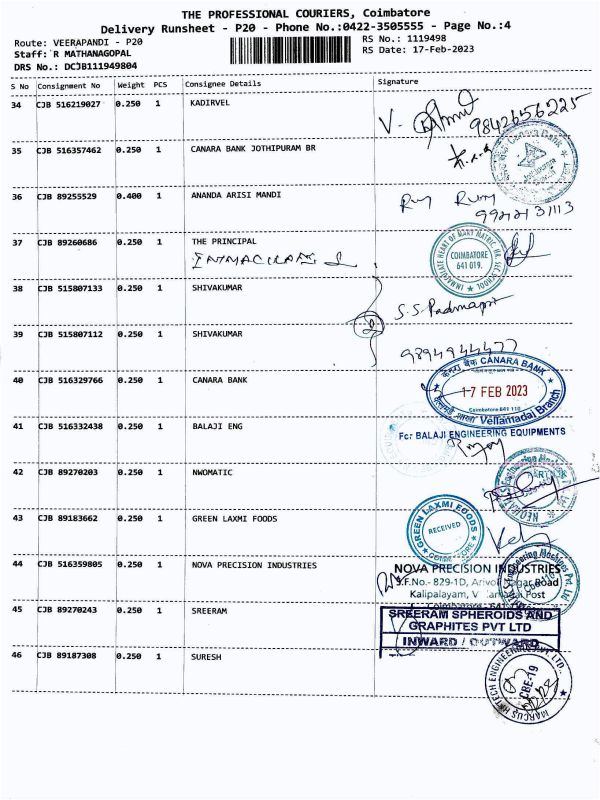 THE PROFESSIONAL COURIERS, Coimbatore
Delivery Runsheet - P20 - Phone No.:0422-3505555 - Page No.:4
Route: VEERAPANDI - P20
RS No.: 1119498
Staff: R MATHANAGOPAL
RS Date: 17-Feb-2023
DRS No.: DCJB111949804
S No Consignment No Weight PCS Consignee Details Signature
34 CJB 516219027 0.250 1 KADIRVEL
V.
9842656225
35 CJB 357462 0.250 1 CANARA BANK JOTHIPURAM BR
Canara Bank
36 CJB 89255529 0.400 1 ANANDA ARISI MANDI
37 CJB 89260686 0.250 1 THE PRINCIPAL
IMMACULATE HEART OF MARY MATRIC. HR. SEC. SCHOOL
COIMBATORE
641 019.
38 CJB 515807133 0.250 1 SHIVAKUMAR
S.S. Padmapr
39 CJB 515807112 0.250 1 SHIVAKUMAR
9894944477
40 CJB 516329766 0.250 1 CANARA BANK
केनरा बैंक CANARA BANK
17 FEB 2023
Coimbatore 641 110
Vellamadai Branch
41 CJB 516332438 0.250 1 BALAJI ENG
For BALAJI ENGINEERING EQUIPMENTS
42 CJB 89270203 0.250 1 NWOMATIC
43 CJB 89183662 0.250 1 GREEN LAXMI FOODS
GREEN LAXMI FOODS
RECEIVED
COIMBATORE
44 CJB 516359805 0.250 1 NOVA PRECISION INDUSTRIES
NOVA PRECISION INDUSTRIES
S.F.No.- 829-1D, Arivoli Nagar Road
Kalipalayam, Post
Coimbatore
45 CJB 89270243 0.250 1 SREERAM
SREERAM SPHEROIDS AND
GRAPHITES PVT LTD
INWARD / OUTWARD
46 CJB 89187308 0.250 1 SURESH
MARCUS HITECH ENGINEERING PVT. LTD.
CBE-19